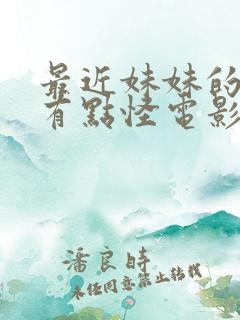 最近妹妹的
有點怪電影
潘良時
未徑同意禁止轉載